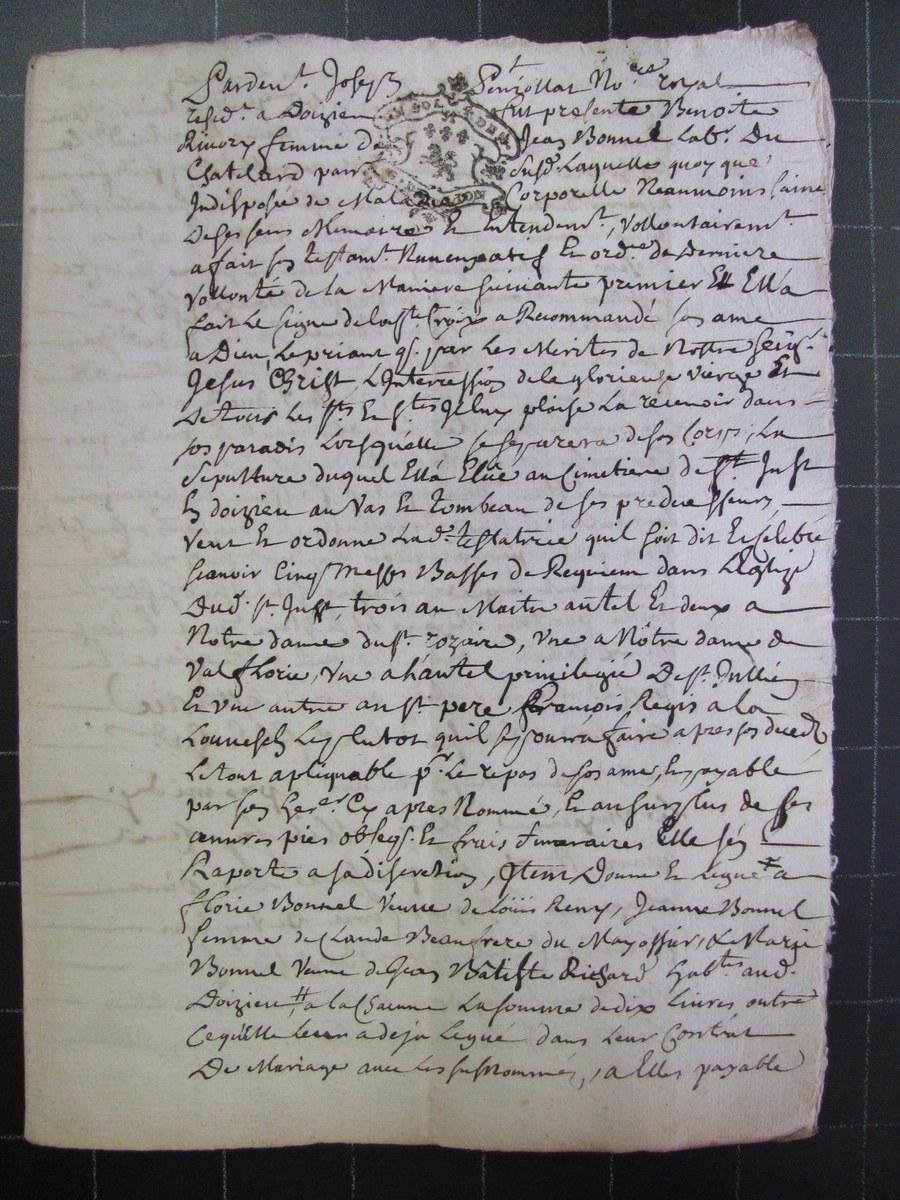 Pardev.t Joseph Pensollat No.re royal
resid.t a Doizieu fut presente Benoite
Rivory femme de Jean Bonnel lab.r Du
Chatelard par.e Susd. Laquelle quoy que
Indisposée de Maladie Corporelle Neaumoins saine
De ses sens Memoire Et Entendem.t, vollontairem.t
a fait son testam.t Nuncupatif Et ord.ce de Derniere
vollonté de la Maniere suivante premierEt Ell'a
fait Le signe de la S.te Croix a Recommandé son ame
a Dieu, Le priant q. par Les Merites de Nostre seig.r
Jesus Christ, L'Intercession de la glorieuse vierge Et
De tous Les S.ts Et S.tes Jl luy plaise La recevoir dans
son paradis Lorsqu'elle se separera de son Corps, La
Sepulture duquel Ell'a Elue au Cimetiere de St. Just
En doizieu au Vas Et tombeau de ses predecesseurs,
Veut Et ordonne Lad. testatrice quil soit dit Et Celebré
scavoir Cinq Messes Basses de Requiem dans L'Eglise
Dud. St. Just, trois au Maitre autel Et deux a
Notre dame du St. rozaire, une a Nôtre dame de
Valflorie, Une a L'hautel privilegié De St. Jullien
Et une autre au St. pere François Regis a la
Louvesch Le plutot quil se pourra faire apres son deced
Le tout apliquable p.r Le repos de son ame, Et payable
par son her.er Cy apres Nommé, Et au surplus de ses
œuvres pies obseq. Et frais funeraires Elle s'en
Raporte a sa discretion, Jtem Donne Et Legue a
florie Bonnel Veuve de Loüis Remy, Jeanne Bonnel
femme de Claude Beaufrere du Mayossier, & Marie
Bonnel Veuve de Jean Batiste Richard hab.tes aud.
Doizieu # a la Chacune La somme de dix Livres outre
Ce qu'Elle Leur a deja Legué dans Leur Contrat
De Mariage avec Les susNommés, a Elles payable